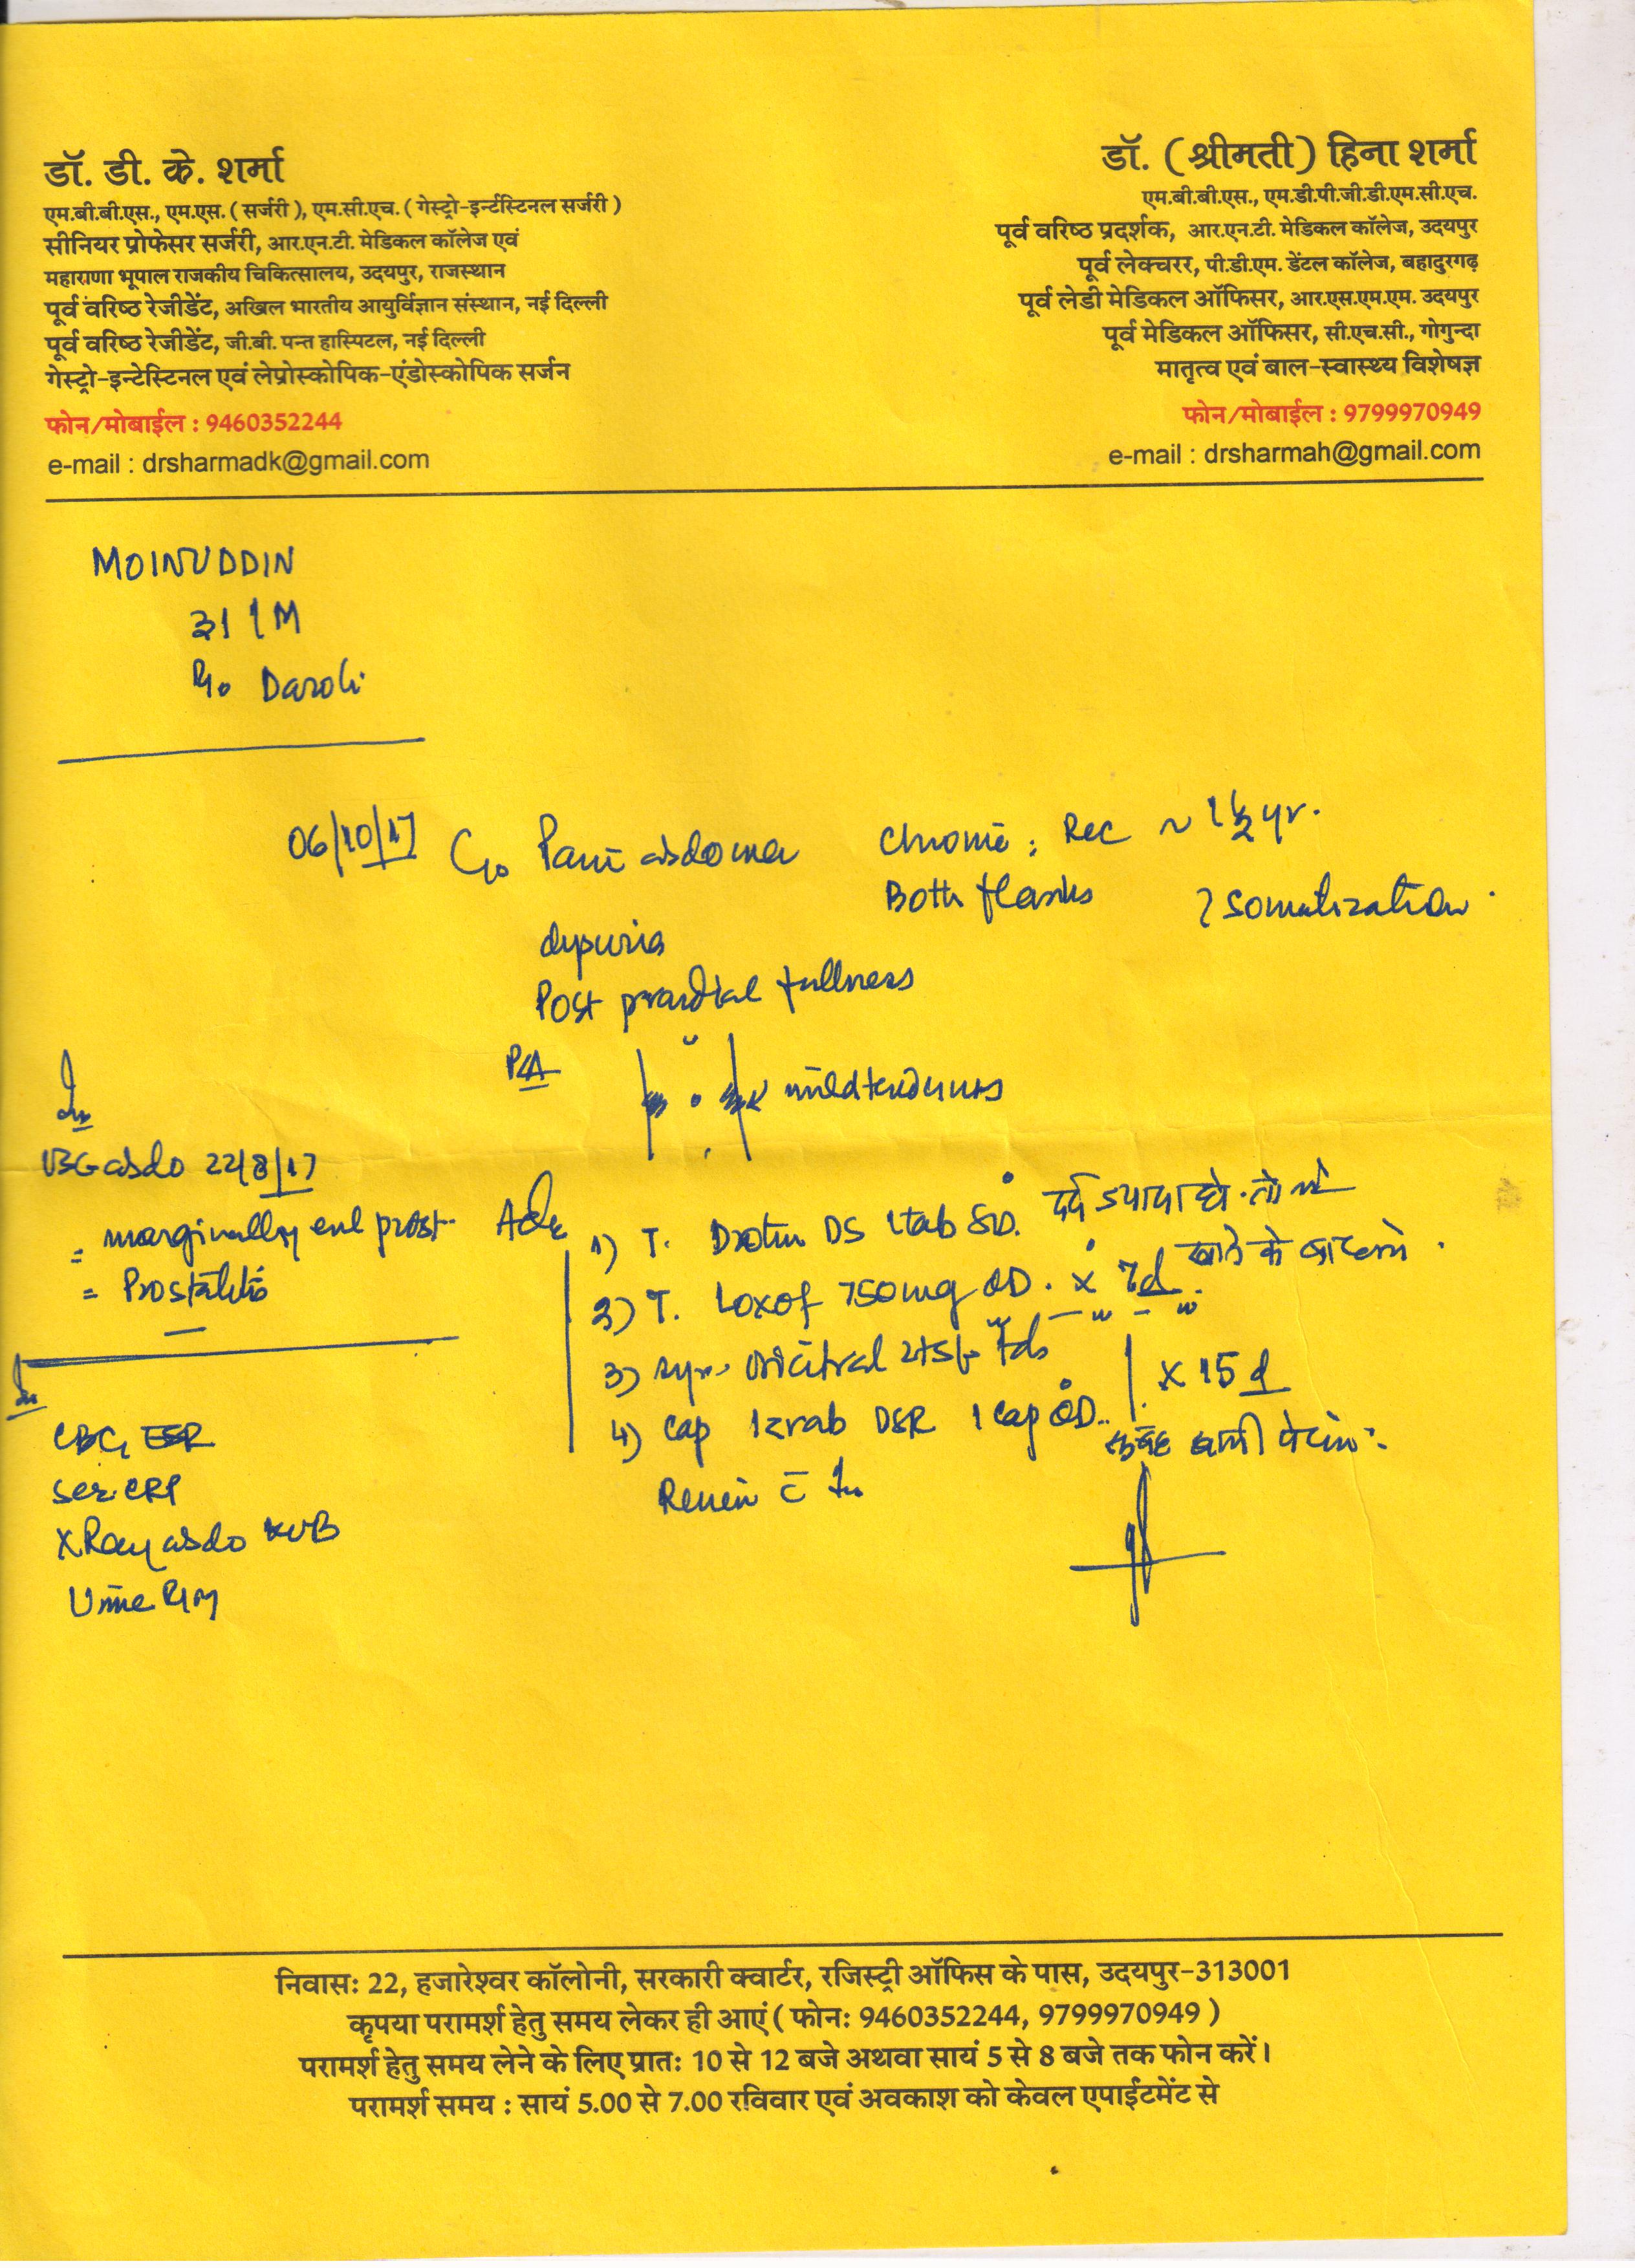 डॉ. डी. के. शर्मा
एम.बी.बी.एस., एम.एस. ( सर्जरी ), एम.सी.एच. ( गेस्ट्रो-इर्न्टस्टिनल सर्जरी )
सीनियर प्रोफेसर सर्जरी, आर.एन.टी. मेडिकल कॉलेज एवं
महाराणा भूपाल राजकीय चिकित्सालय, उदयपुर, राजस्थान
पूर्व वरिष्ठ रेजीडेंट, अखिल भारतीय आयुर्विज्ञान संस्थान, नई दिल्ली
पूर्व वरिष्ठ रेजीडेंट, जी.बी. पन्त हास्पिटल, नई दिल्ली
गेस्ट्रो-इन्टेस्टिनल एवं लेप्रोस्कोपिक-एंडोस्कोपिक सर्जन
फोन/मोबाईल : 9460352244
e-mail : drsharmadk@gmail.com
डॉ. (श्रीमती) हिना शर्मा
एम.बी.बी.एस., एम.डी.पी.जी.डी.एम.सी.एच.
पूर्व वरिष्ठ प्रदर्शक, आर.एन.टी. मेडिकल कॉलेज, उदयपुर
पूर्व लेक्चरर, पी.डी.एम. डेंटल कॉलेज, बहादुरगढ़
पूर्व लेडी मेडिकल ऑफिसर, आर.एस.एम.एम. उदयपुर
पूर्व मेडिकल ऑफिसर, सी.एच.सी., गोगुन्दा
मातृत्व एवं बाल-स्वास्थ्य विशेषज्ञ
फोन/मोबाईल : 9799970949
e-mail : drsharmah@gmail.com
MOINUDDIN
31 / M
R/o Daroli
06/10/17 C/o Pain abdomen Chronic : Rec ~ 1½ yr.
Both flanks ? somatization
dysuria
Post prandial fullness
P/A mild tenderness
In
USG abdo 22/8/17
= marginally enl prost.
= Prostatitis
Adv
1) T. Drotin DS 1 tab SOS. दर्द ज्यादा हो तो ले
2) T. Loxof 750mg OD. x 7d खाने के बाद
3) syr. tds
4) Cap Izrab DSR 1 cap OD. x 15 d
सुबह खाली पेट
Review c̄ In
In
CBC, ESR
ser. CRP
X Ray abdo KUB
Urine R/M
निवास: 22, हजारेश्वर कॉलोनी, सरकारी क्वार्टर, रजिस्ट्री ऑफिस के पास, उदयपुर-313001
कृपया परामर्श हेतु समय लेकर ही आएं ( फोन: 9460352244, 9799970949 )
परामर्श हेतु समय लेने के लिए प्रात: 10 से 12 बजे अथवा सायं 5 से 8 बजे तक फोन करें।
परामर्श समय : सायं 5.00 से 7.00 रविवार एवं अवकाश को केवल एपाईंटमेंट से